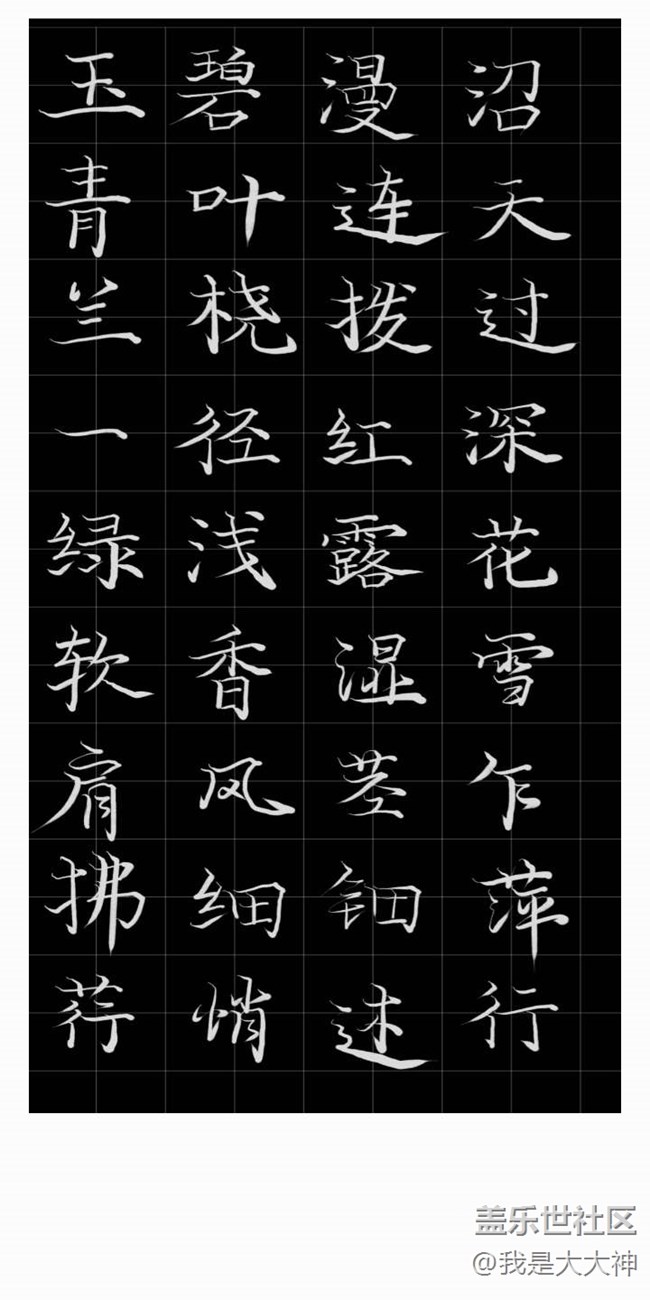 玉碧漫沼
青叶连天
兰桡拨过
一径红深
绿浅露花
软香湿雪
肩风茎乍
拂细钿萍
荇悄述行
盖乐世社区
@我是大大神